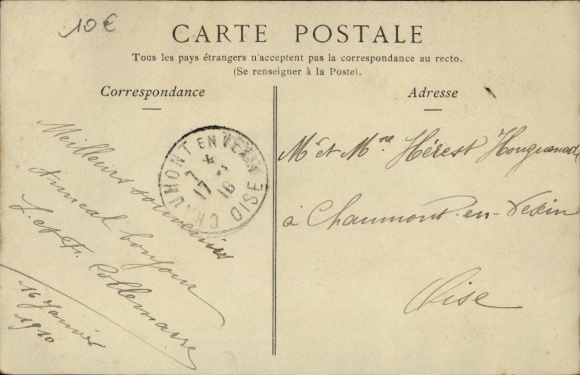 10€
CARTE POSTALE
Tous les pays étrangers n'acceptent pas la correspondance au recto.
(Se renseigner à la Poste).
Correspondance
Adresse
Meilleurs souvenirs
amical bonjour
L. et Fr. Collemaire
16 Janvier
1910
CHAUMONT EN VEXIN
17
OISE
Mr et Mme Hérest
à Chaumont-en-Vexin
Oise